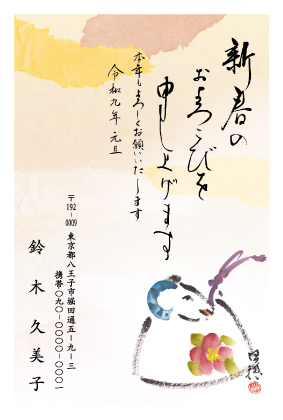 新春の
およろこびを
申し上げます
本年もよろしくお願いいたします
令和九年 元旦
〒192-0009
東京都八王子市堀田通五-九-三
携帯〇九〇-〇〇〇〇-〇〇〇一
鈴木久美子